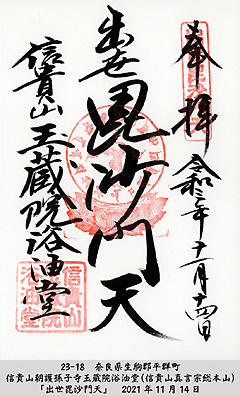 奉拝
令和三年十一月十四日
出世毘沙門天
信貴山玉蔵院浴油堂
信貴山
浴油堂
23-18 奈良県生駒郡平群町
信貴山朝護孫子寺玉蔵院浴油堂(信貴山真言宗総本山)
「出世毘沙門天」 2021年11月14日